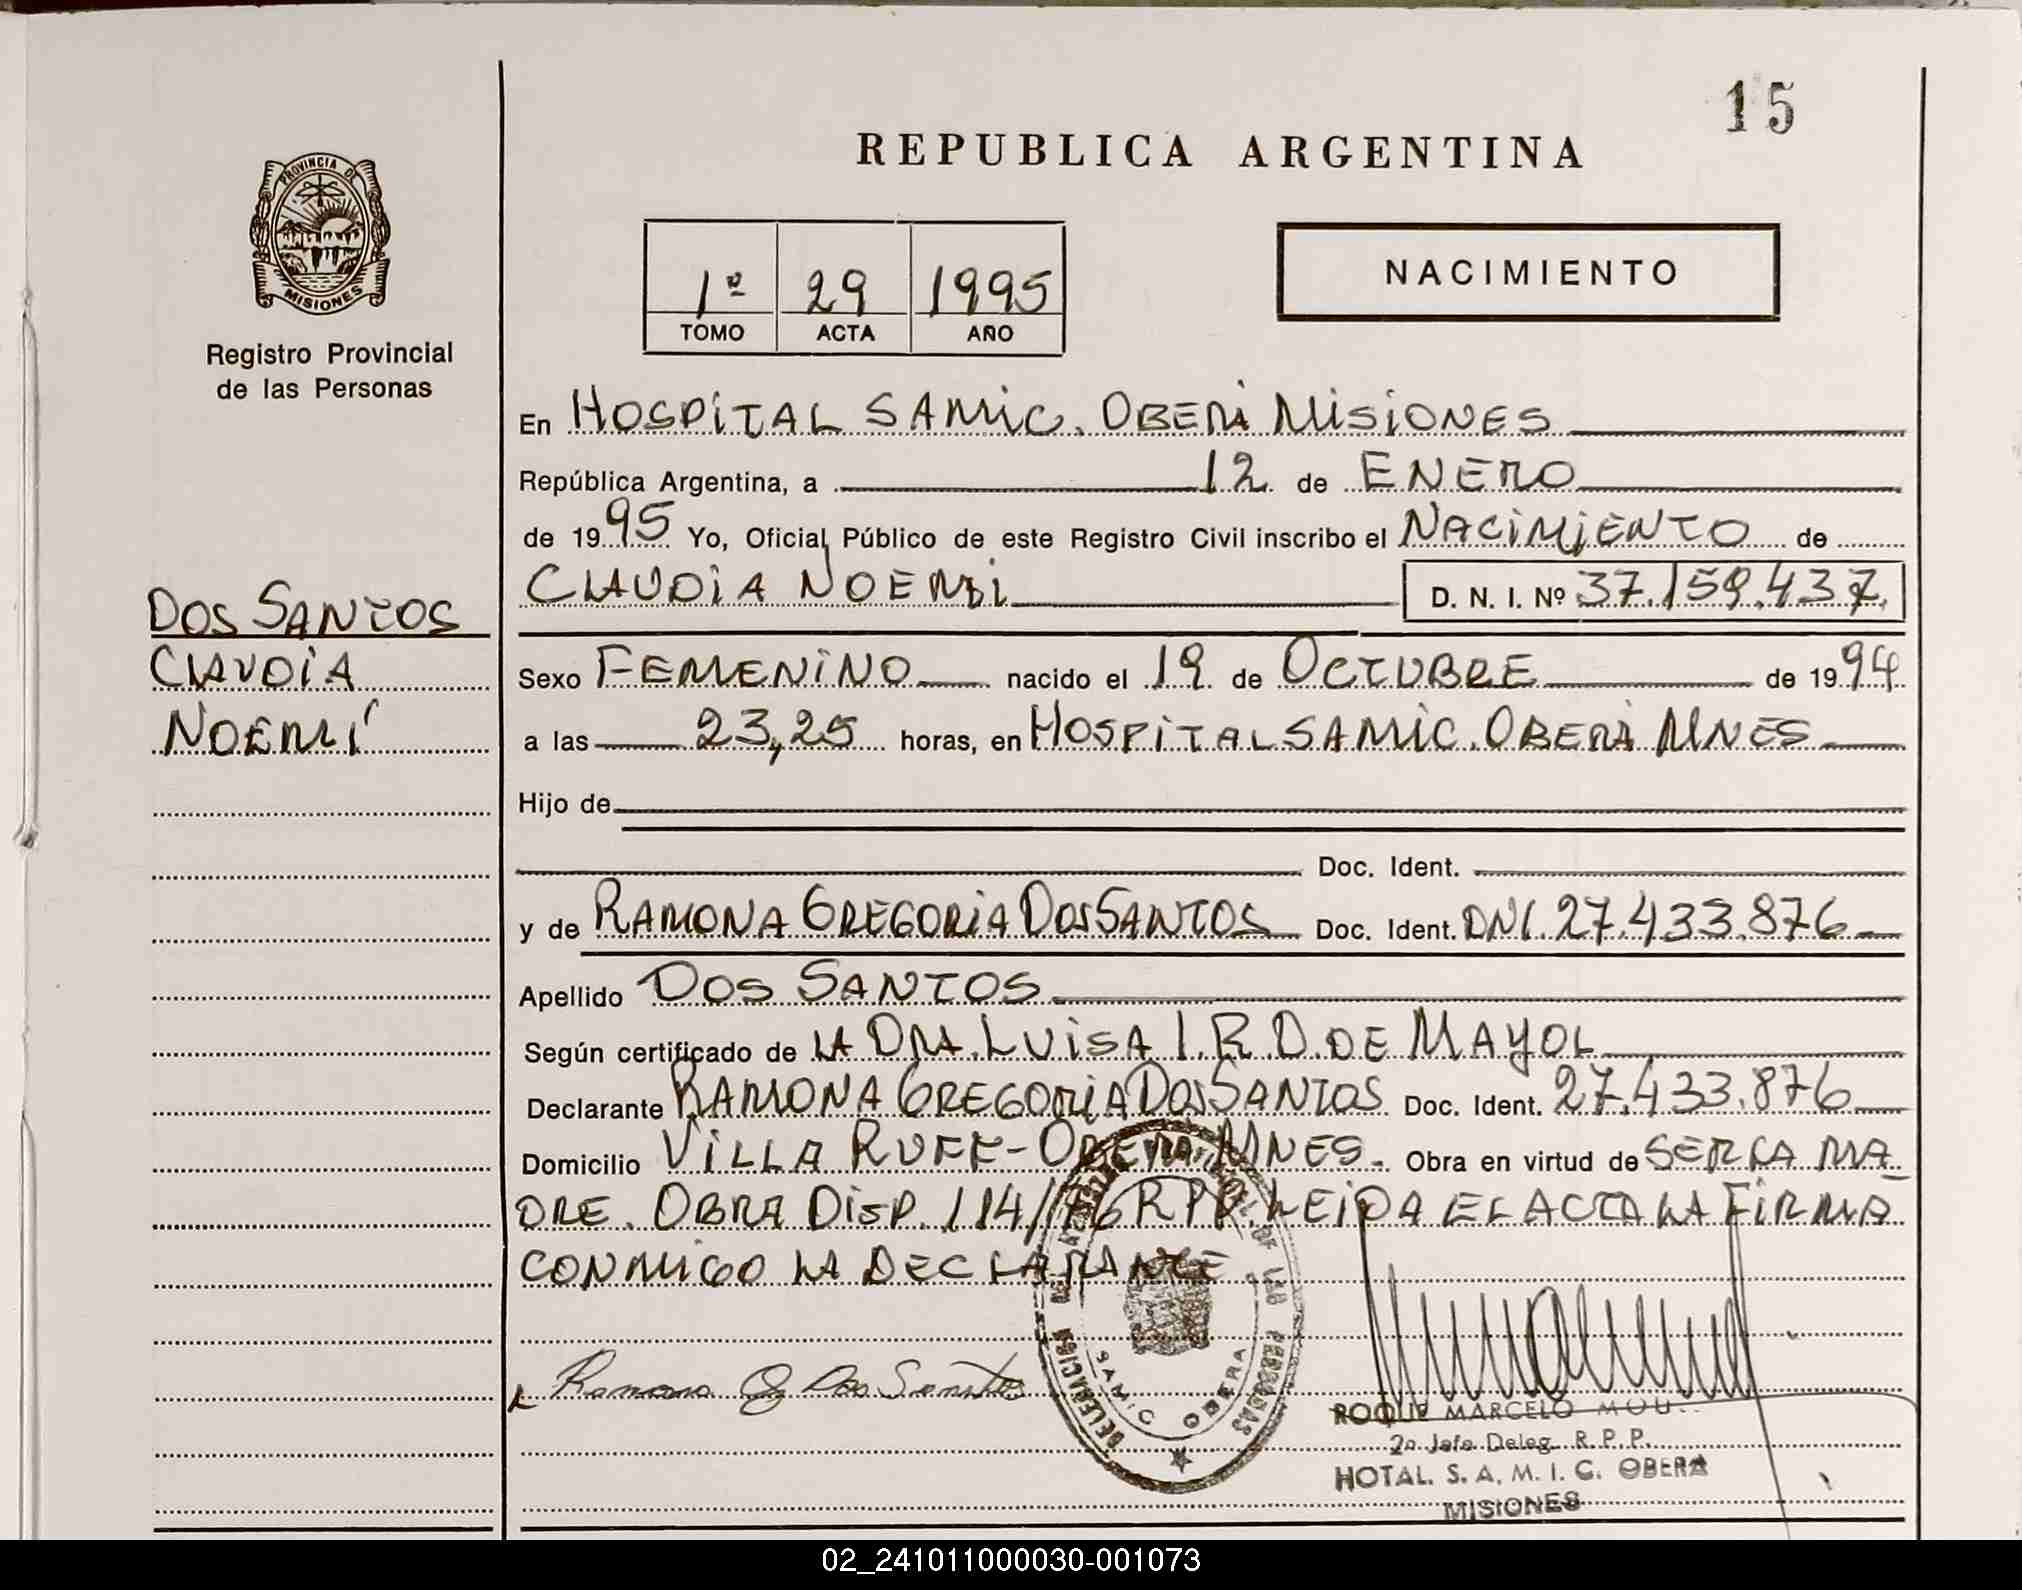 15
REPUBLICA ARGENTINA
PROVINCIA DE
MISIONES
Registro Provincial
de las Personas
1º 29 1995
TOMO ACTA AÑO
NACIMIENTO
En HOSPITAL SAMIC. OBERA MISIONES
República Argentina, a 12 de ENERO
de 1995 Yo, Oficial Público de este Registro Civil inscribo el NACIMIENTO de
CLAUDIA NOEMI D. N. I. Nº 37.159.437
DOS SANTOS
CLAUDIA
NOEMÍ
Sexo FEMENINO nacido el 19 de OCTUBRE de 1994
a las 23,25 horas, en HOSPITAL SAMIC. OBERA MNES
Hijo de
Doc. Ident.
y de RAMONA GREGORIA DOS SANTOS Doc. Ident. DNI. 27.433.876
Apellido DOS SANTOS
Según certificado de LA DRA. LUISA I. R. D. DE MAYOL
Declarante RAMONA GREGORIA DOS SANTOS Doc. Ident. 27.433.876
Domicilio VILLA RUFF - OBERA MNES. Obra en virtud de SER LA MA
DRE. OBRA DISP. 114/76 RPP. LEIDA EL ACTA LA FIRMA
CONMIGO LA DECLARANTE
Ramona G Dos Santos
DELEGACION
DE LAS PERSONAS
SAMIC OBERA
ROQUE MARCELO MOU
2º Jefe Deleg. R. P. P.
HOTAL. S. A. M. I. C. OBERA
MISIONES
02_241011000030-001073